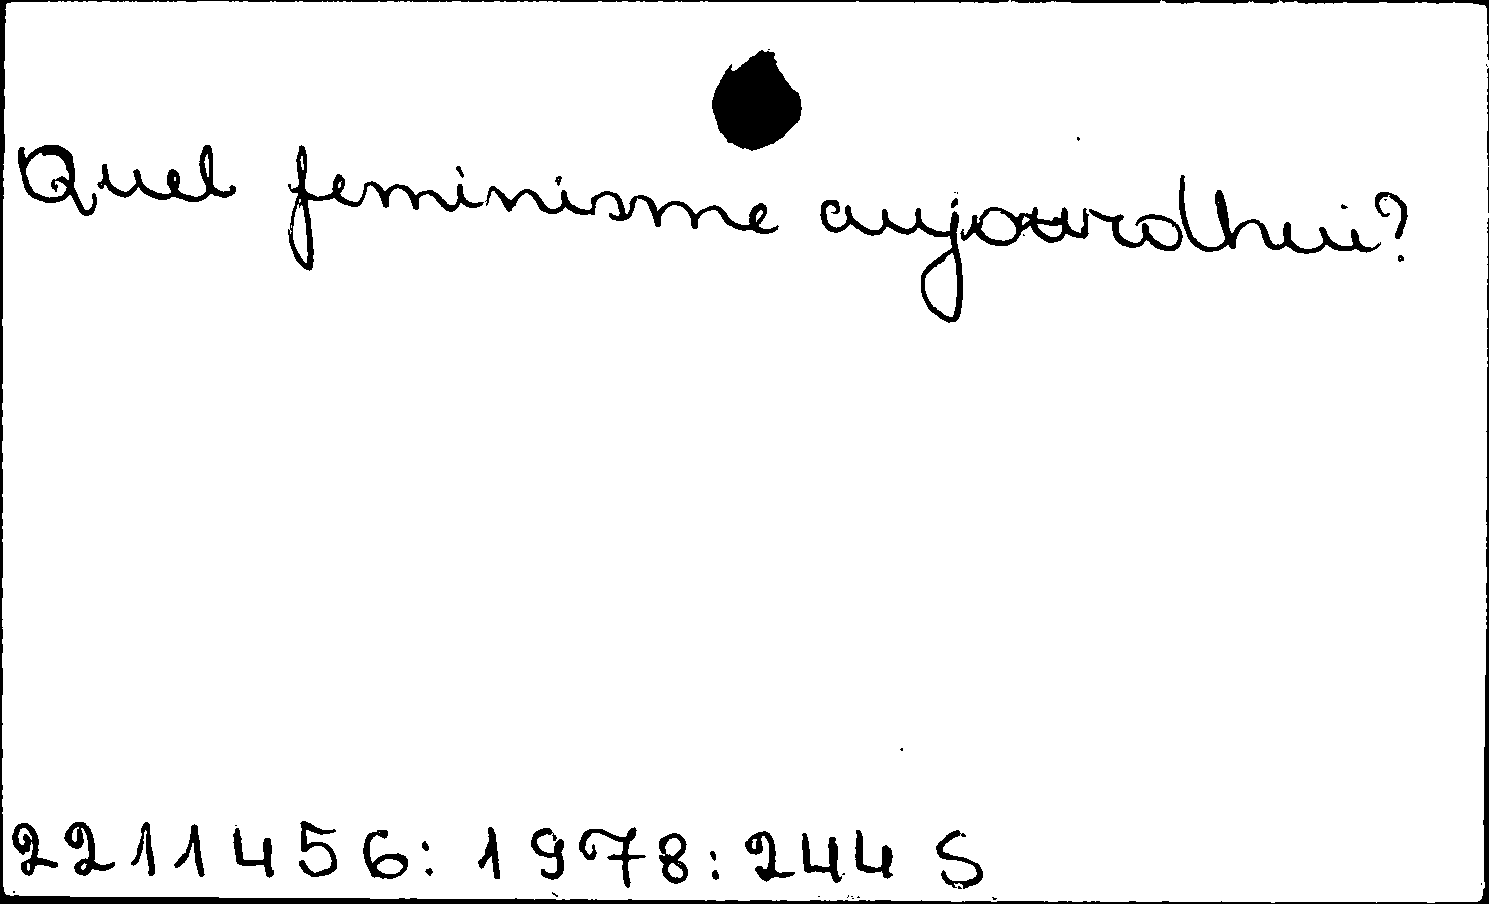 Quel feminisme aujourdhui?
2211456: 1978: 244 S